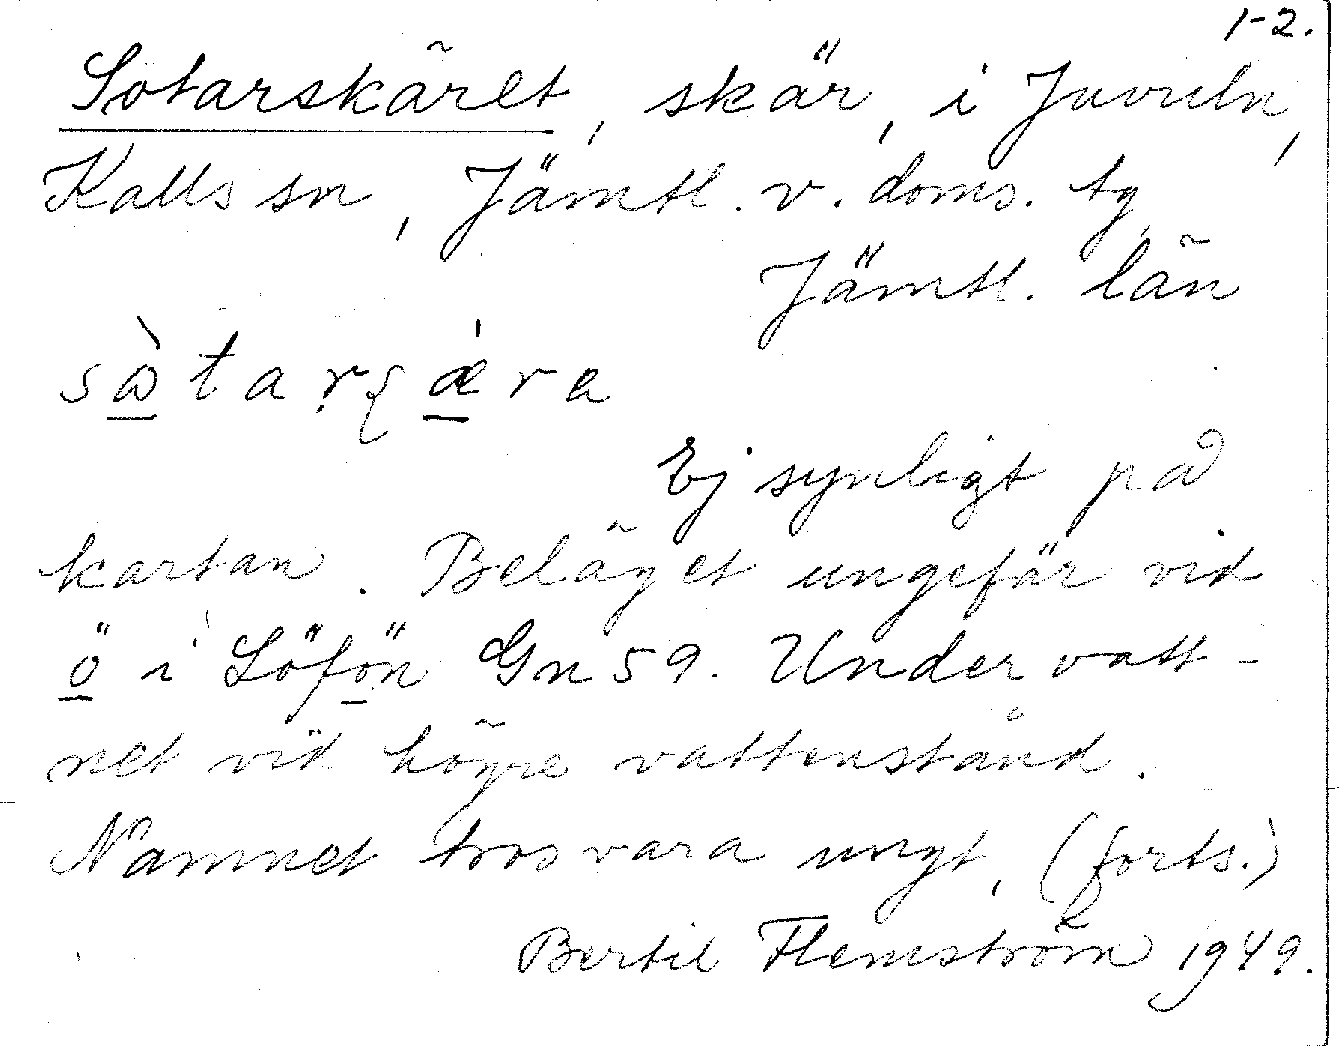 1-2.
Sotarskäret, skär, i Juveln,
Kalls sn, Jämtl. v. doms. tg
Jämtl. län
Ej synligt på
kartan. Beläget ungefär vid
ö i Löfön Gn 59. Under vatt-
net vid högre vattenstånd.
Namnet tros vara ungt, (forts.)
Bertil Flemström 1949.